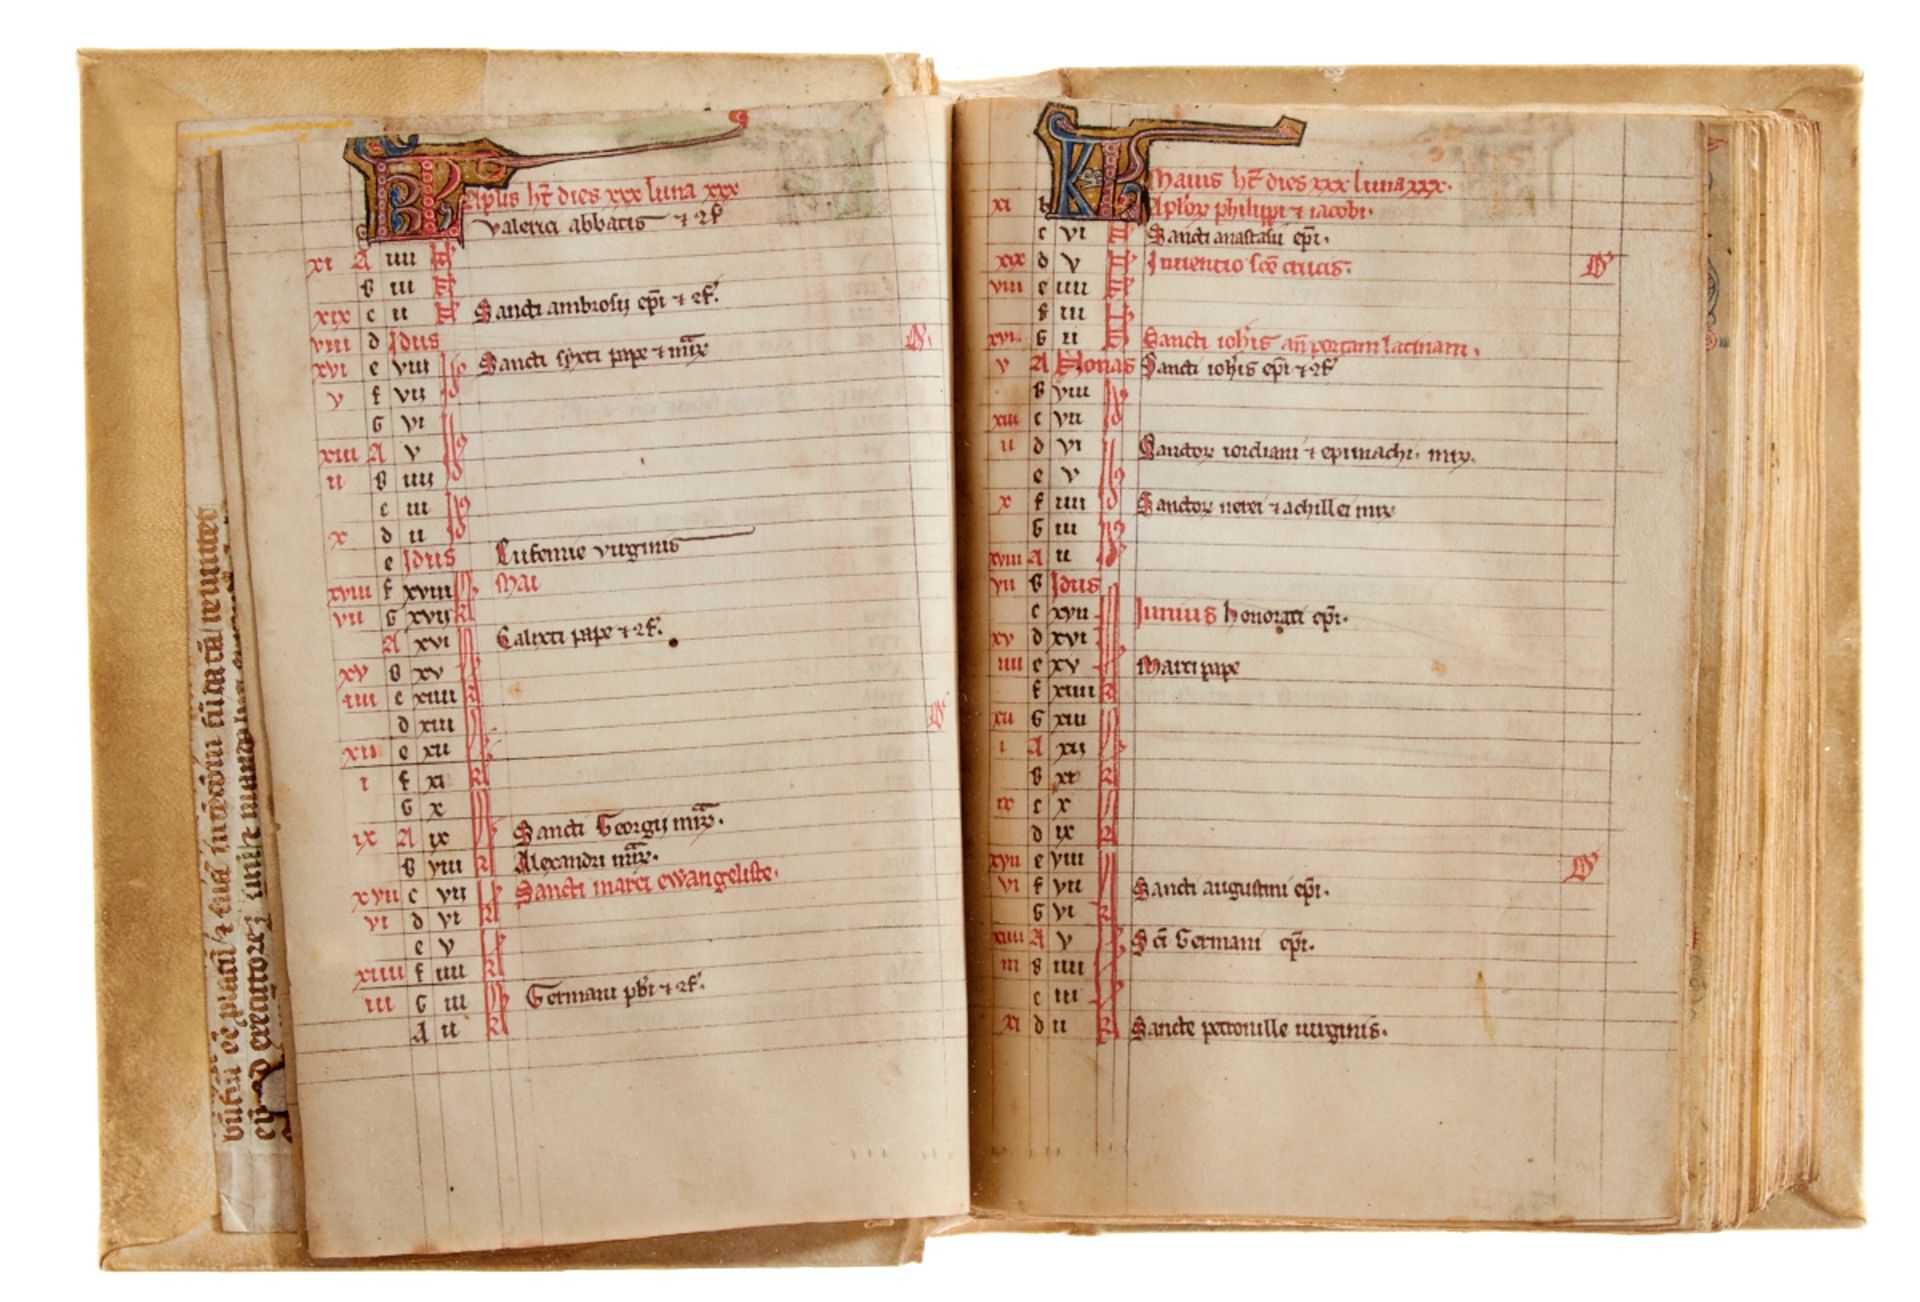 KL
Aplis ht dies xxx luna xxx
Valerici abbatis ⁊ 9f
xi A iiii N
b iii N
xix c ii N Sancti ambrosij epi ⁊ 9f.
viii d Idus
xvi e viii Id Sancti syxti pape ⁊ mr
v f vii
G vi Id
xiii A v
ii b iiii Id
c iii
x d ii Id
e Idus Eufemie virginis
xviii f xviii Mai
vii G xvii kl
A xvi Calixti pape ⁊ 9f.
xv b xv
iiii c xiiii kl
d xiii
xii e xii
i f xi kl
G x
ix A ix Sancti Georgij mr.
b viii kl Alexandri mr.
xvii c vii Sancti marci ewangeliste.
vi d vi kl
e v
xiiii f iiii kl
iii G iii Germani pbi ⁊ 9f.
A ii kl
KL Maius ht dies xxx luna xxx.
xi b Aplorꝝ philippi ⁊ iacobi.
c vi N Sancti anastasii epi.
xix d v N Inuentio sce crucis.
viii e iiii N
f iii N
xvi G ii N Sancti iohis an portam latinam.
v A Nonas Sancti iohis epi ⁊ 9f
b viii
xiii c vii Id
ii d vi Sanctorꝝ iordiani ⁊ epimachi. mrꝝ.
e v
x f iiii Id Sanctorꝝ nerei ⁊ achillei mrꝝ
G iii
xviii A ii Id
vii b Idus
c xvii Iunius honorati epi.
xv d xvi
iiii e xv Marci pape
f xiiii kl
xii G xiii
i A xii
b xi kl
ix c x
d ix kl
xvii e viii
vi f vii Sancti augustini epi.
G vi kl
xiiii A v Sci Germani epi.
iii b iiii
c iii
xi d ii kl Sancte petronille uirginis.